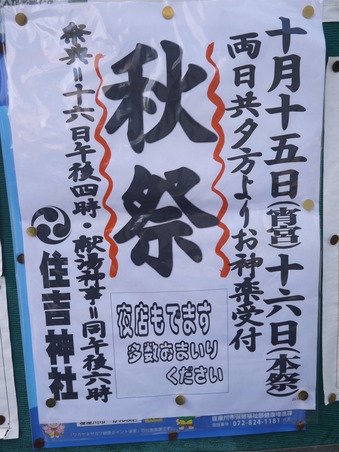 十月十五日(宵宮)十六日(本祭)
両日共夕方よりお神楽受付
秋祭
祭典=十六日午後四時・献湯神事=同午後六時
住吉神社
夜店もでます
多数おまいり
ください
072-824-1181